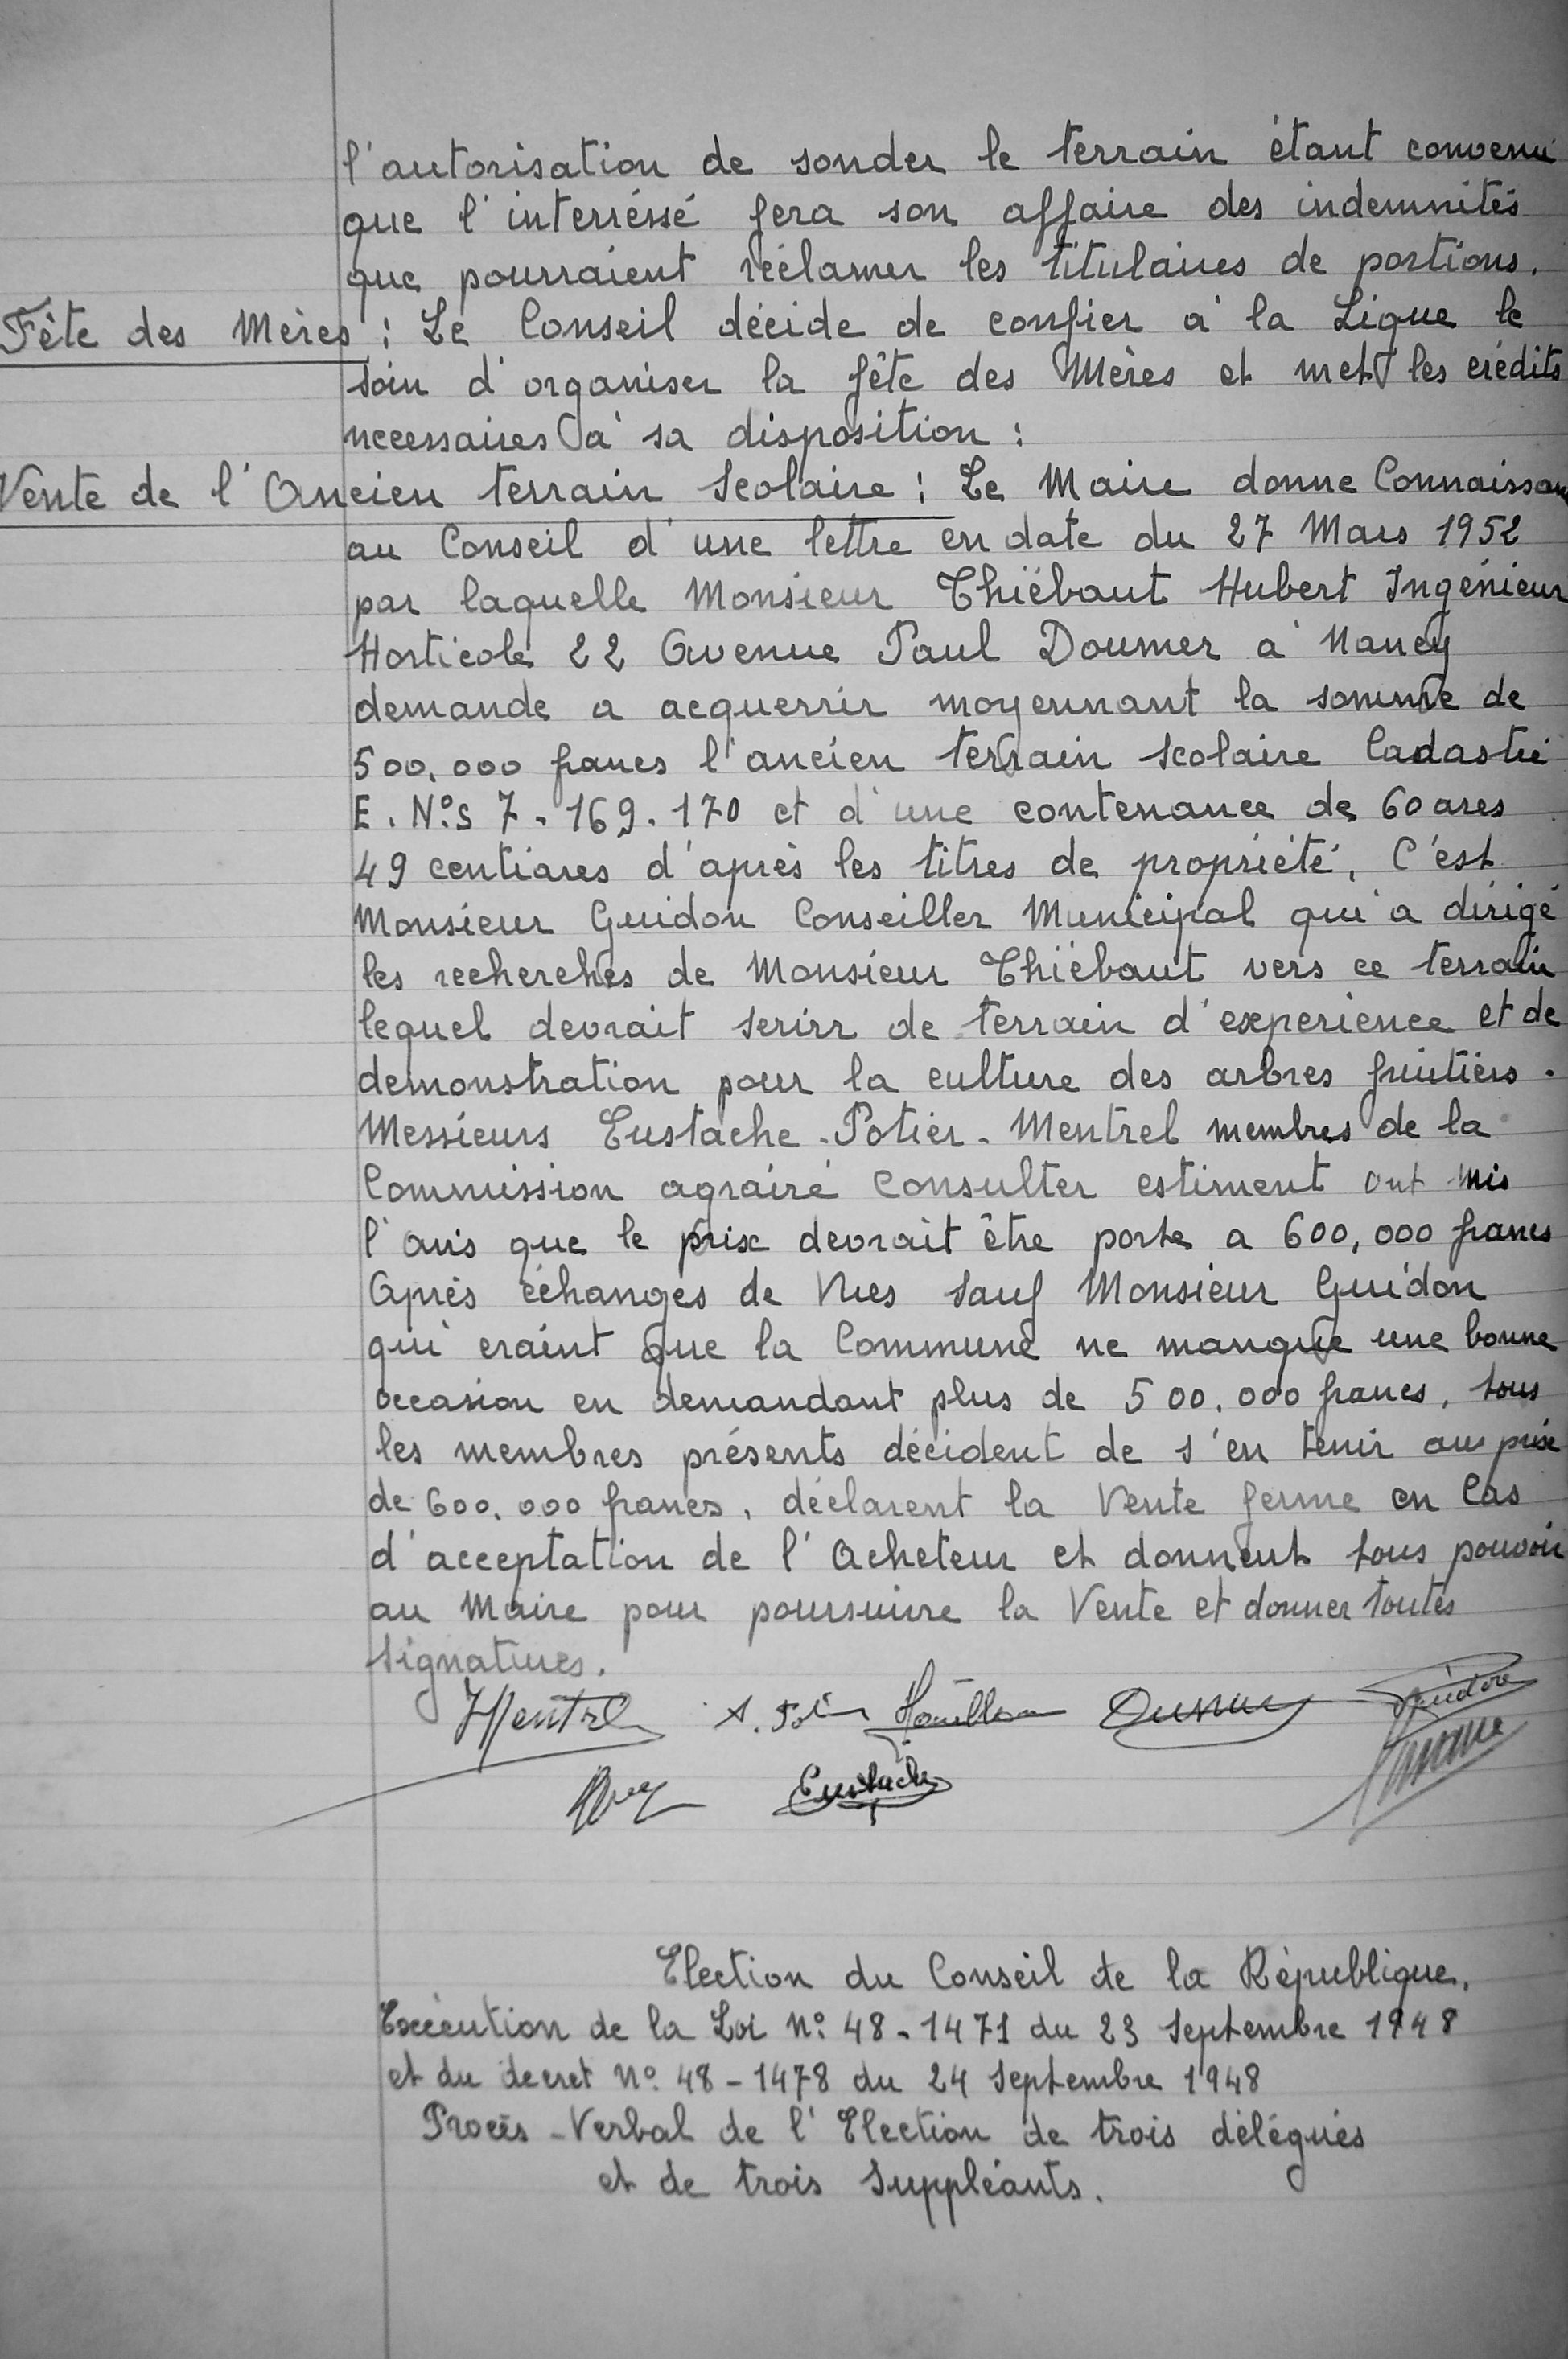 l'autorisation de sonder le terrain étant convenu
que l'interréssé fera son affaire des indemnités
que pourraient réclamer les titulaires de portions.
Fête des Mères : Le Conseil décide de confier à la Ligue le
soin d'organiser la fête des Mères et met les crédits
necessaires à sa disposition :
Vente de l'Ancien terrain Scolaire : Le Maire donne Connaissan
au Conseil d'une lettre en date du 27 Mars 1952
par laquelle Monsieur Thiébaut Hubert Ingénieur
Horticole 22 Avenue Paul Doumer à Nancy
demande a acquerrir moyennant la somme de
500.000 francs l'ancien terrain scolaire Cadastré
E. N°s 7-169.170 et d'une contenance de 60 ares
49 centiares d'après les titres de propriété. C'est
Monsieur Guidon Conseiller Municipal qui a dirigé
les recherches de Monsieur Thiébaut vers ce terrain
lequel devrait serirr de terrain d'experience et de
demonstration pour la culture des arbres fruitiers.
Messieurs Eustache - Potier - Mentrel membres de la
Commission agraire consulter estiment ont mis
l'avis que le prix devrait être porte a 600,000 francs
Après échanges de Vues sauf Monsieur Guidon
qui craint que la Commune ne manque une bonne
occasion en demandant plus de 500.000 francs, tous
les membres présents décident de s'en tenir au prix
de 600.000 francs, déclarent la Vente ferme en Cas
d'acceptation de l'Acheteur et donnent tous pouvoir
au Maire pour poursuivre la Vente et donner toutes
signatures.
Mentrel Guidon
Eustache
Election du Conseil de la République.
Exécution de la Loi N° 48-1471 du 23 Septembre 1948
et du decret N° 48-1478 du 24 Septembre 1948
Procès-Verbal de l'Election de trois délégués
et de trois Suppléants.